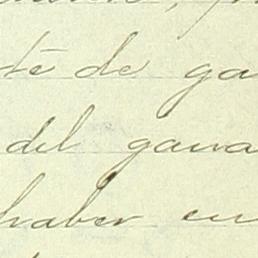 té de ga
del gana
haber en